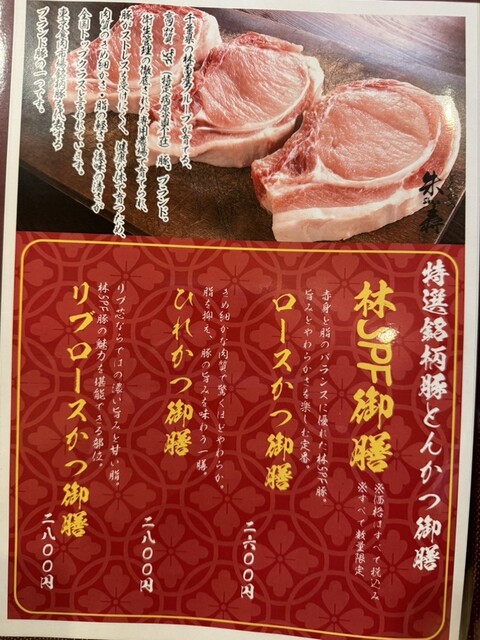 千葉県の林商店グループが育てる、
高品質「SPF（特定病原体不在）豚」ブランド。
衛生管理の徹底された専用農場で育てられ、
豚がストレスを受けにくく、健康な状態で育つため、
肉質のきめ細かさ・脂の軽さ・後味の清らかさが
全国トップクラスと言われています。
ブランド豚の一つです。
特選銘柄豚とんかつ御膳
林SPF御膳
※価格はすべて税込み
※すべて数量限定
ロースかつ御膳
赤身と脂のバランスに優れた林SPF豚。
旨みとやわらかさを楽しむ定番。
二六〇〇円
ひれかつ御膳
きめ細かな肉質で驚くほどやわらか。
脂を抑え、豚の旨みを味わう一膳。
二八〇〇円
リブロースかつ御膳
リブ芯ならではの濃い旨みと甘い脂。
林SPF豚の魅力を堪能できる部位。
二八〇〇円